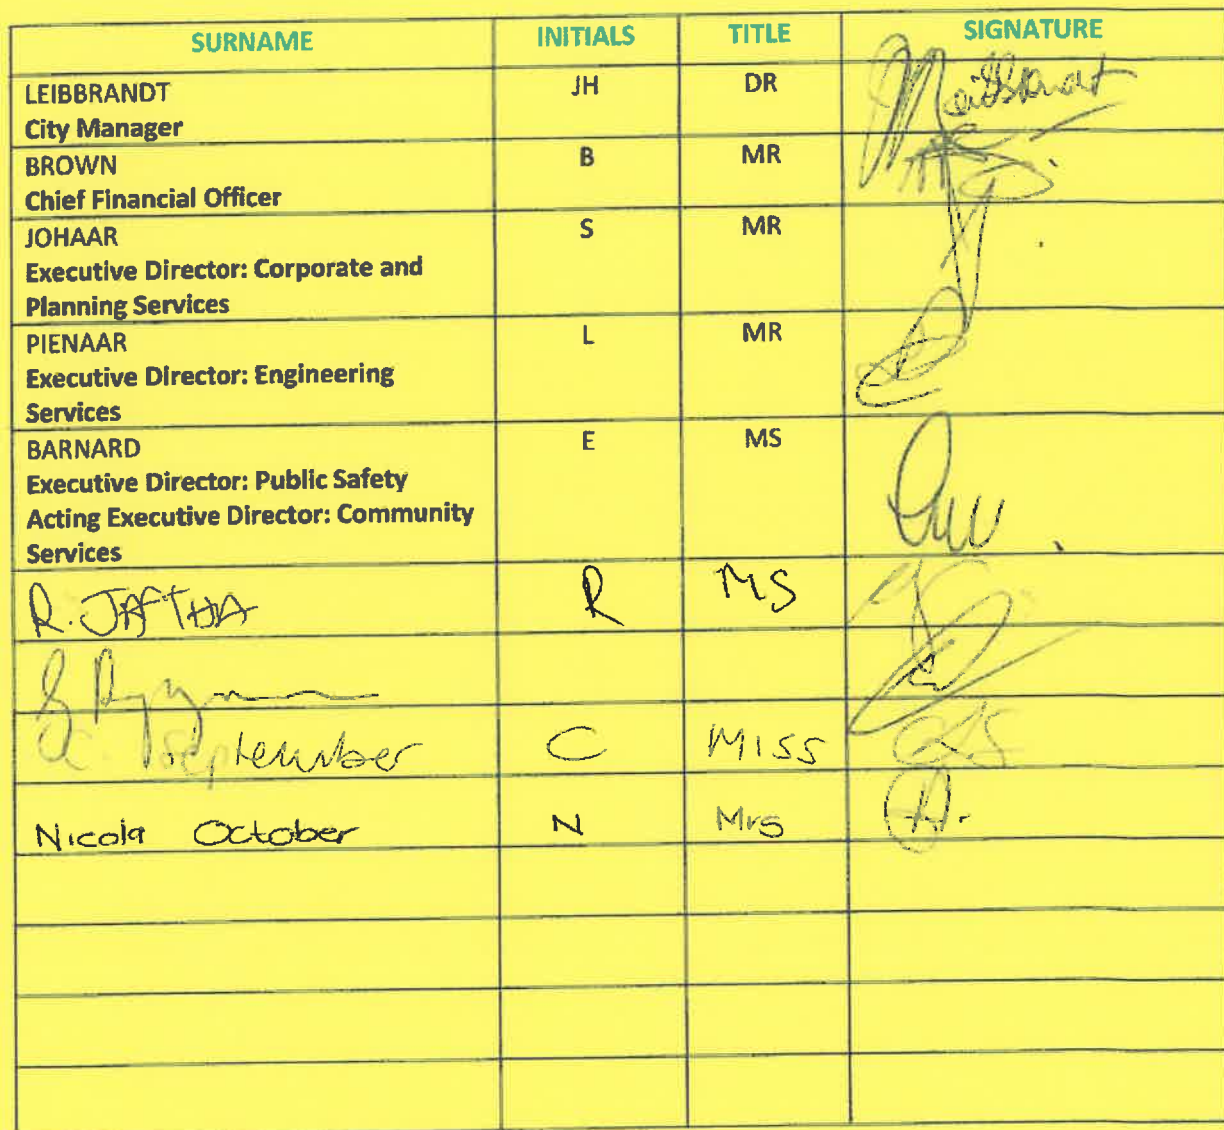 SURNAME INITIALS TITLE SIGNATURE
LEIBBRANDT JH DR
City Manager
BROWN B MR
Chief Financial Officer
JOHAAR S MR
Executive Director: Corporate and
Planning Services
PIENAAR L MR
Executive Director: Engineering
Services
BARNARD E MS
Executive Director: Public Safety
Acting Executive Director: Community
Services
R. JAFTHA R MS
C. September C MISS
Nicola October N Mrs